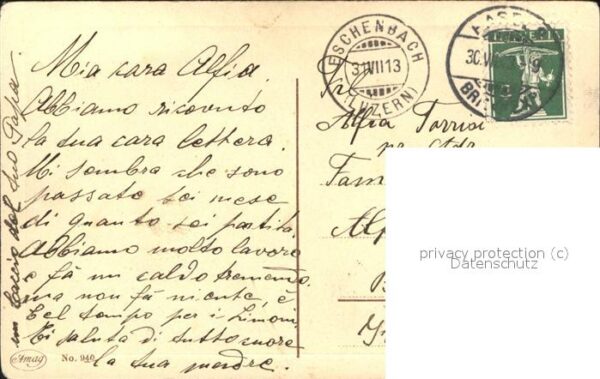 Mia cara Alfia.
Abbiamo ricevuto
la tua cara lettera.
Mi sembra che sono
passato sei mese
di quanto sei partita.
Abbiamo molto lavoro
e fà un caldo tremendo
ma non fà niente, è
bel tempo per i Limoni.
Ti saluta di tutto cuore
la tua madre.
un bacio del tuo Papa
Amag No. 940
ESCHENBACH
31 VII 13
(LUZERN)
30. VII
BRI
Alfia Torrisi
Fam
Alp
privacy protection (c)
Datenschutz